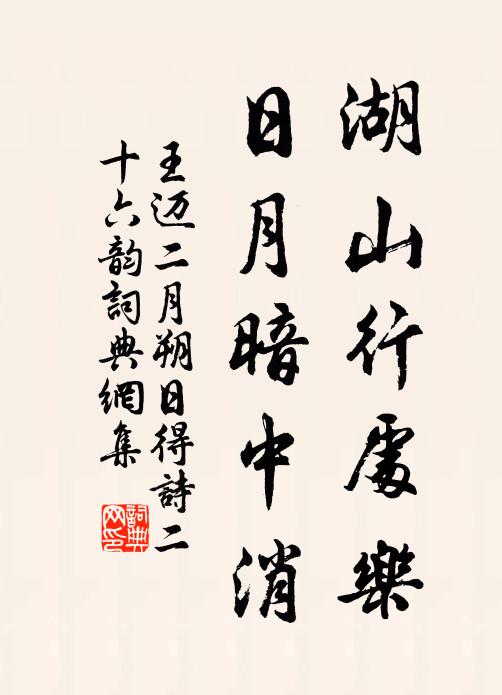 湖山行處樂
日月暗中消
王迈二月朔日得詩二
十六韵詞典網集
詞典
网印